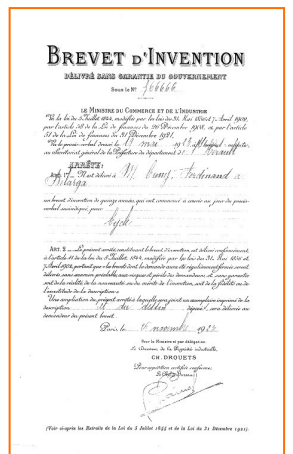 BREVET D'INVENTION
DÉLIVRÉ SANS GARANTIE DU GOUVERNEMENT
Sous le No 766666
LE MINISTRE DU COMMERCE ET DE L'INDUSTRIE
Vu la loi du 5 Juillet 1844, modifiée par les lois du 31 Mai 1856 et 7 Avril 1902,
par l'article 58 de la Loi de finances du 26 Décembre 1908, et par l'article
31 de la Loi de finances du 31 Décembre 1921,
Vu le procès-verbal dressé le
au Secrétariat général de la Préfecture du département d
ARRÊTE:
Art. 1er - Il est délivré à M. Ferdinand à
un brevet d'invention de quinze années, qui ont commencé à courir au jour du procès-
verbal susvisé, pour
Cycle
ART. 2. - Le présent arrêté, constituant le brevet d'invention, est délivré conformément
à l'article 11 de la loi du 5 Juillet 1844, modifiée par les lois du 31 Mai 1856 et
7 Avril 1902, portant que les brevets dont la demande aura été régulièrement formée seront
délivrés sans examen préalable, aux risques et périls des demandeurs, et sans garantie
soit de la réalité, de la nouveauté ou du mérite de l'invention, soit de la fidélité ou de
l'exactitude de la description.
Une ampliation du présent arrêté, à laquelle sera joint un exemplaire imprimé de la
description sera délivrée au
demandeur du présent brevet.
Paris, le novembre
Pour le Ministre et par délégation:
Le Directeur de la Propriété industrielle,
CH. DROUETS
Pour ampliation certifiée conforme:
Le Chef de Bureau
(Voir ci-après les Extraits de la Loi du 5 Juillet 1844 et de la Loi du 31 Décembre 1921)